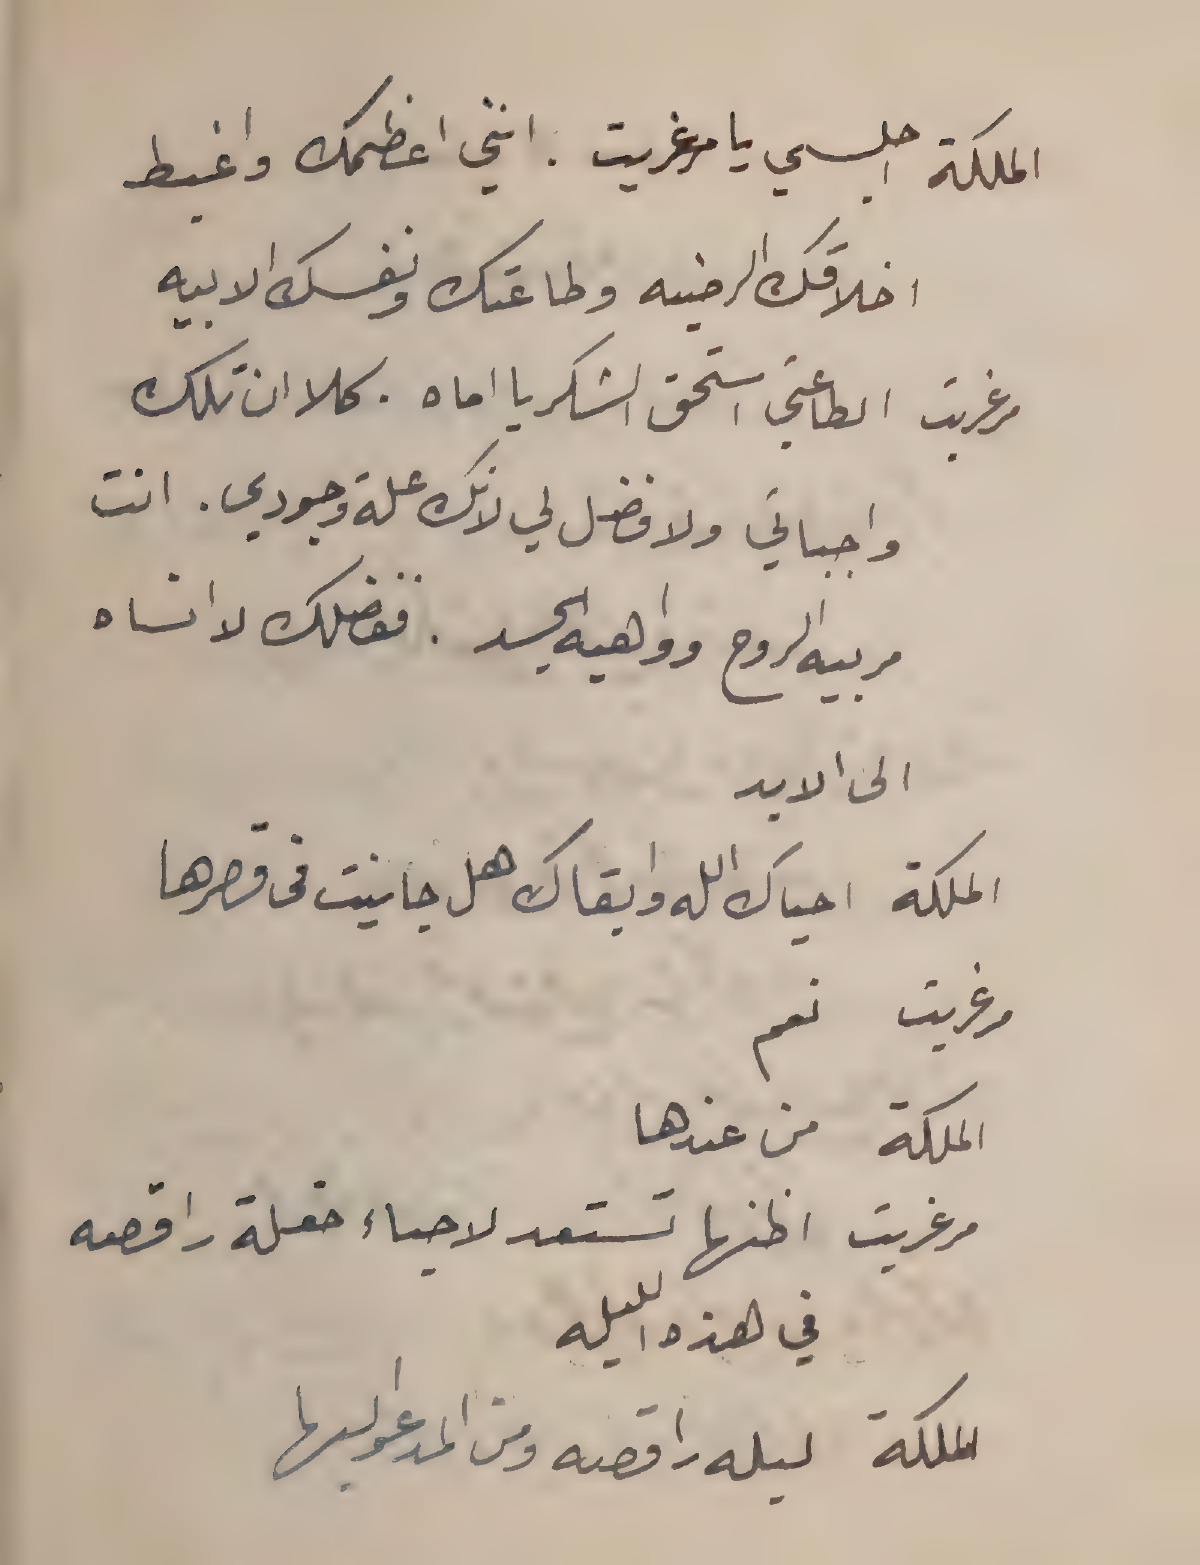 الملكة اجلسي يا مرغريت . انني اعظمك واغبط
اخلاقك الرضيه وطاعتك ونفسك الابيه
مرغريت الطاعتي استحق الشكر يا اماه . كلا ان تلك
واجباتي ولا فضل لي لانك علة وجودي . انت
مربيه الروح وواهبه الجسد . ففضلك لا انساه
الى الابد
الملكة احياك الله وابقاك هل جانيت فى قصرها
مرغريت نعم
الملكة من عندها
مرغريت اظنها تستعد لاحياء حفلة راقصه
في هذه الليله
الملكة ليله راقصه ومن المدعو اليها